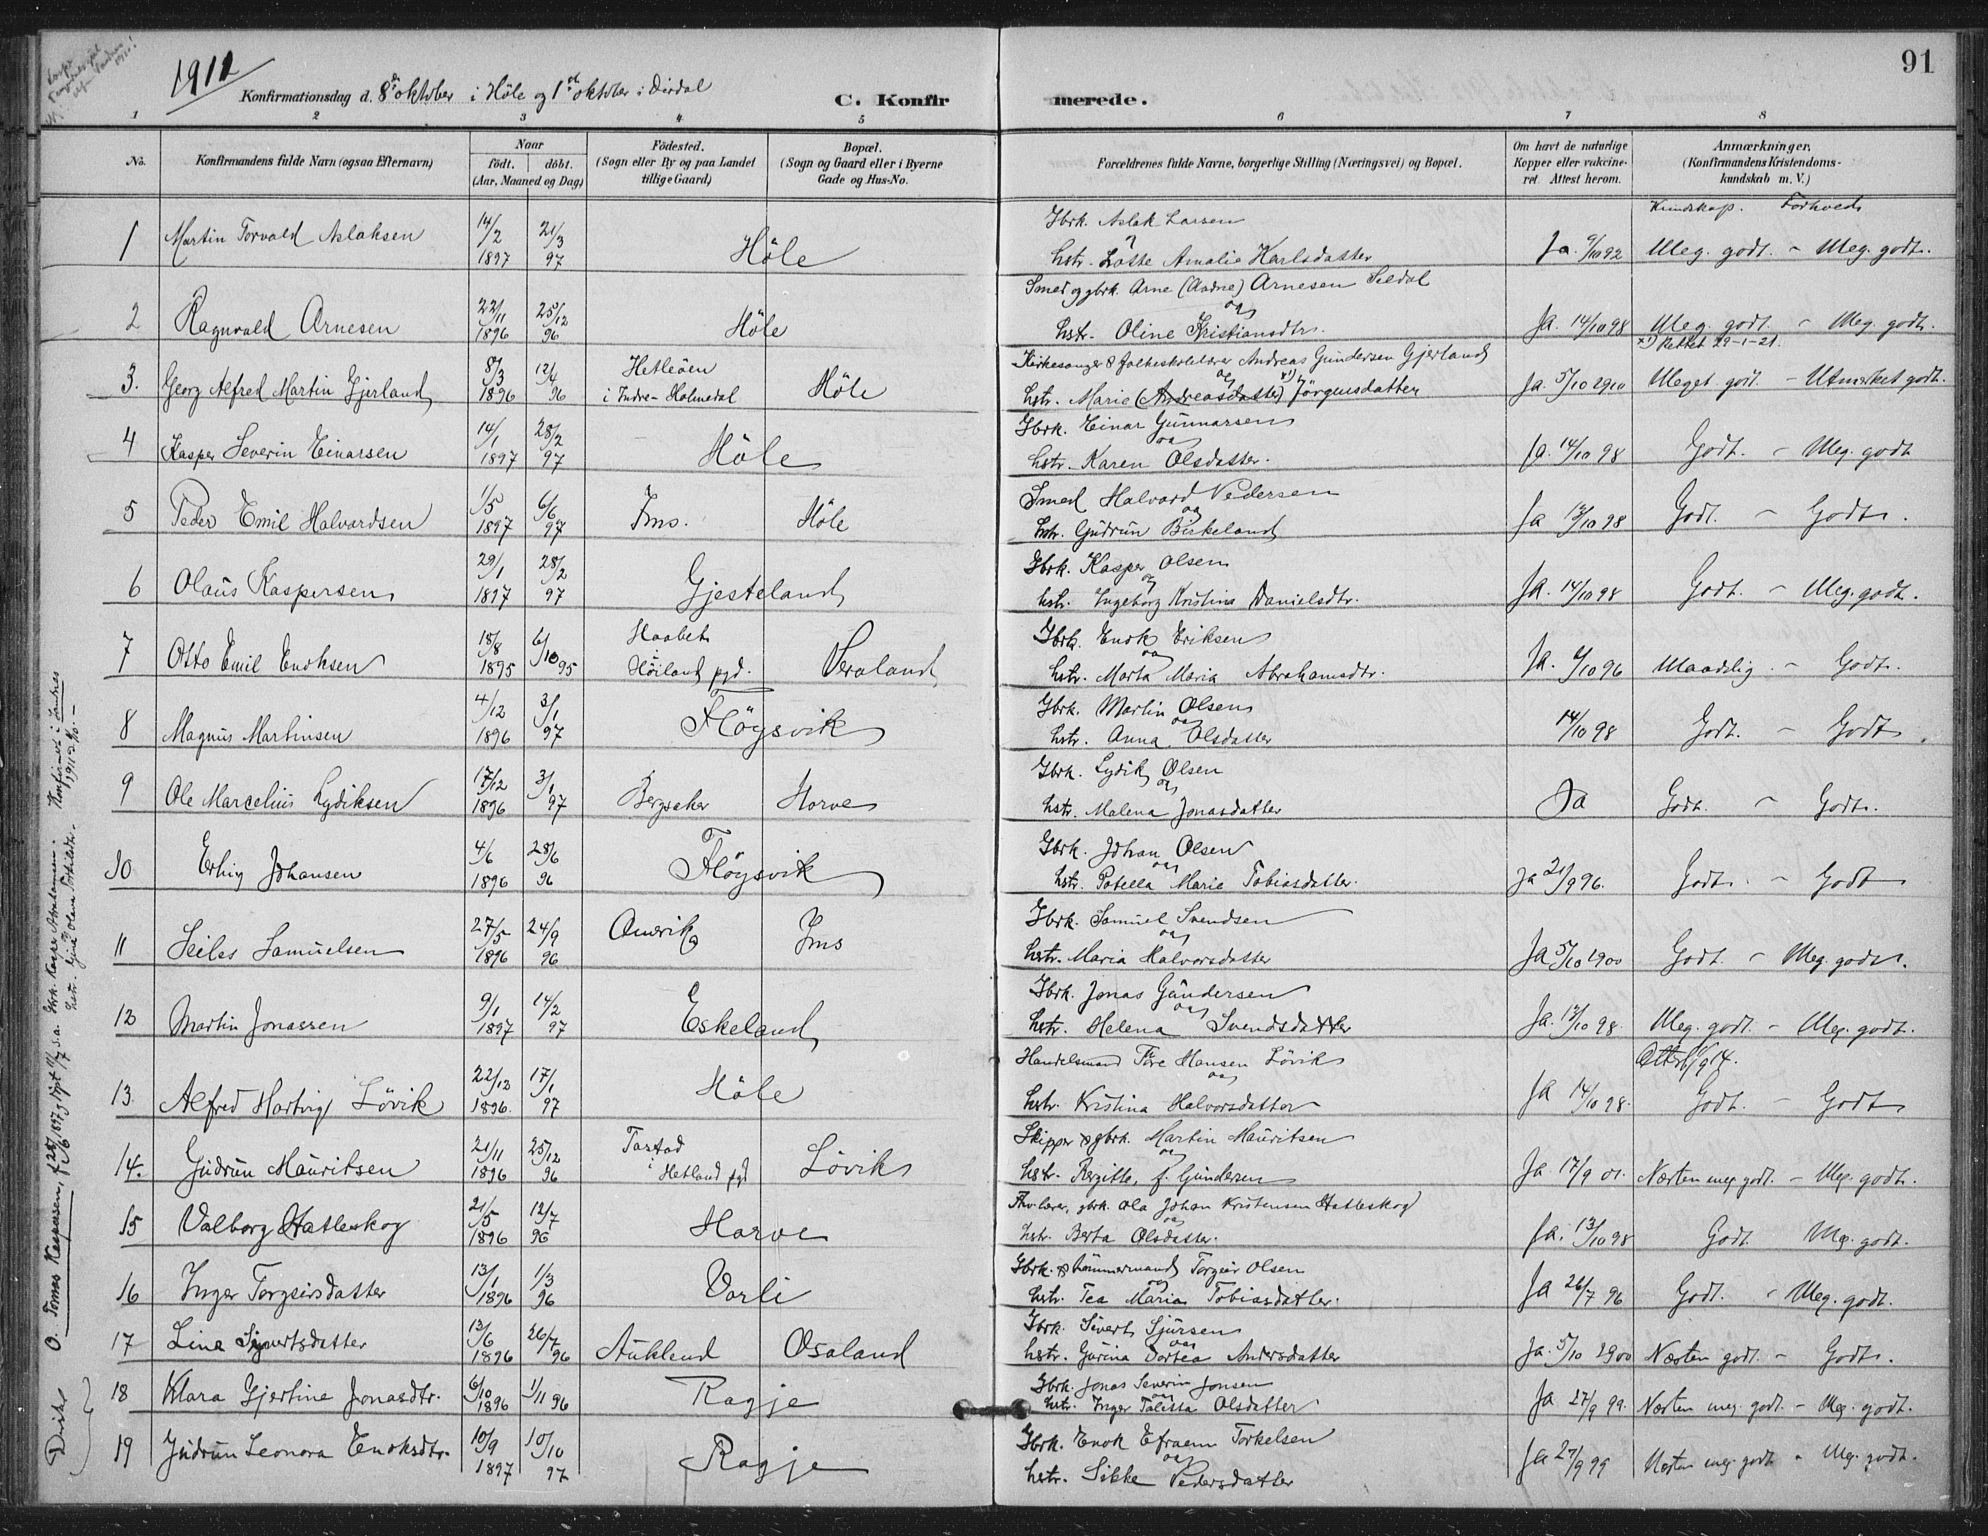 91
1911
Konfirmationsdag d. 8de oktober i Höle og 1st oktober i Dirdal
C. Konfirmerede.
1 2 3 4 5 6 7 8
No. Konfirmandens fulde Navn (ogsaa Efternavn) Naar födt. döbt. (Aar, Maaned og Dag) Födested. (Sogn eller By og paa Landet tillige Gaard) Bopæl. (Sogn og Gaard eller i Byerne Gade og Hus-No. Forældrenes fulde Navne, borgerlige Stilling (Næringsvei) og Bopæl. Om havt de naturlige Kopper eller vakcineret. Attest herom. Anmærkninger. (Konfirmandens Kristendomskundskab m. V.)
Kundskap. Forhold
1 Martin Torvald Aslaksen 14/2 1897 21/3 97 Höle Gbrk. Aslak Larsen og hstr. Lötte Amalie Karlsdatter Ja. 92 Meg. godt. - Meg. godt.
2 Ragnvald Arnesen 22/11 1896 25/12 96 Höle Smed og gbrk. Arne (Aadne) Arnesen Seldal og hstr. Oline Kristiansdtr. Ja. 14/10 98 Meg. godt. - Meg. godt.
x1) Rettet 29-1-21.
3. Georg Alfred Martin Gjerland 8/3 1896 12/4 96 Hetleöen i Indre-Holmedal Höle Kirkesanger & folkeskolelærer Andreas Gundersen Gjerland og hstr. Marie (Andreasdatter) x1) Jörgensdatter Ja 5/10 1910 Meget godt. - Utmerket godt.
4 Kasper Severin Einarsen 14/1 1897 28/2 97 Höle Gbrk. Einar Gunnarsen og hstr. Karen Olsdatter. Ja. 14/10 98 Godt. - Meg. godt
5 Peder Emil Halvardsen 1/5 1897 6/6 97 Ims. Höle Smed Halvard Pedersen og hstr. Gudrun Birkeland Ja 13/10 98 Godt. - Godt.
6 Olaus Kaspersen 29/1 1897 28/2 97 Gjesteland Gbrk. Kasper Olsen og hstr. Ingeborg Kristina Danielsdtr. Ja. 14/10 98 Godt. - Meg. godt.
7 Otto Emil Enoksen 18/8 1895 6/10 95 Haabet i Höiland pgd. Veraland Gbrk. Enok Eriksen og hstr. Marta Maria Abrahamsdtr. Ja. /10 96 Maadelig - Godt.
8 Magnus Martinsen 4/12 1896 3/1 97 Flögsvik Gbrk. Martin Olsen og hstr. Anna Olsdatter 14/10 98 Godt. - Godt
9 Ole Marcelius Lydiksen 17/12 1896 3/1 97 Bergsaker Horve Gbrk. Lydik Olsen og hstr. Malena Jonasdatter Ja Godt. - Godt.
10 Erling Johansen 4/6 1896 28/6 96 Flögsvik Gbrk. Johan Olsen og hstr. Potella Marie Tobiasdatter. Ja 21/9 96. Godt. - Godt
11 Seilas Samuelsen 27/5 1896 24/9 96 Amerika Ims Gbrk. Samuel Svendsen og hstr. Maria Halvorsdatter Ja 5/10 1900 Godt. - Meg. godt.
12 Martin Jonassen 9/1 1897 14/2 97 Eskeland Gbrk. Jonas Gundersen og hstr. Helena Svendsdatter Ja. 13/10 98. Meg. godt. - Meg. godt.
13 Alfred Hartvig Lövik 22/12 1896. 17/1 97 Höle Handelsmand Tore Hansen Lövik og hstr. Kristina Halvorsdatter Ja 14/10 98. Godt. - Godt
14. Gudrun Mauritsen 21/11 1896 25/12 96 Tastad i Hetland pgd Lövik Skipper & gbrk. Martin Mauritsen og hstr. Bergitte, f. Gundersen Ja 17/9 01. Næsten meg. godt. - Meg. godt.
15 Valborg Hatleskog 21/5 1896 12/7 96 Horve Fhv. lærer, gbrk. Ola Johan Kristensen Hatleskog og hstr. Berta Olsdatter. Ja. 13/10 98 Godt. Meg. godt.
16 Inger Torgeirsdatter 13/1 1896 1/3 96 Vorli Gbrk. & tömmermand Torgeir Olsen og hstr. Tea Maria Tobiasdatter. Ja 26/7 96 Godt. - Meg. godt.
17 Line Sivertsdatter 13/6 1896 26/7 96 Auklend Osaland Gbrk. Sivert Sjursen og hstr. Gurina Dortea Andersdatter Ja. 5/10 1900 Næsten godt. - Godt.
18 Klara Gjertine Jonasdtr. 6/10 1896 1/11 96 Ragje Gbrk. Jonas Severin Jonsen og hstr. Inger Talitta Olsdatter Ja 27/9 99. Næsten meg. godt. - Meg. godt.
19 Gudrun Leonora Enoksdtr. 10/9 1897 10/10 97 Ragje Gbrk. Enok Efraem Torkelsen og hstr. Sikke Pedersdatter Ja 27/9 99 Næsten meg. godt - Meg. godt.
Dirdal
O. Tomas Kaspersen, f. 25/6 1897 döpt 11/7 s.a. Gbrk. Kasper Abrahamsen. Konfirmert i Sandnes
hstr. Gjina Olava Torkildsdtr. 1911